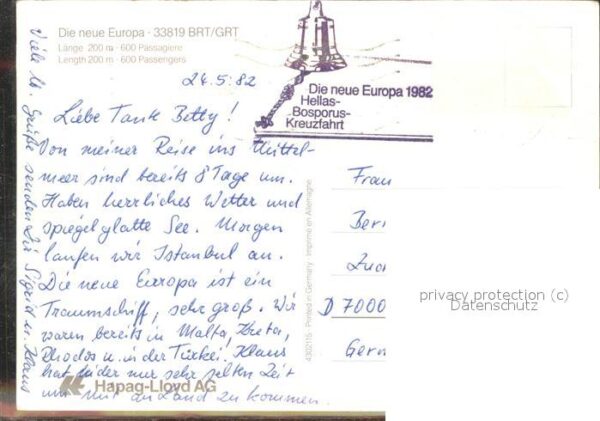 Die neue Europa · 33819 BRT/GRT
Länge 200 m · 600 Passagiere
Length 200 m · 600 Passengers
24.5.82
Die neue Europa 1982
Hellas-
Bosporus-
Kreuzfahrt
Liebe Tante Betty!
Von meiner Reise ins Mittel-
meer sind bereits 8 Tage um.
Haben herrliches Wetter und
spiegelglatte See. Morgen
laufen wir Istanbul an.
Die neue Europa ist ein
Traumschiff, sehr groß. Wir
waren bereits in Malta, Kreta,
Rhodos u. in der Türkei. Klaus
hat leider nur sehr selten Zeit
um mit an Land zu kommen.
Viele lb. Grüße senden Dir Sigrid u. Klaus
Hapag-Lloyd AG
4302015 · Printed in Germany · Imprimé en Allemagne
Frau
Ber
D 7000
Ger
privacy protection (c)
Datenschutz